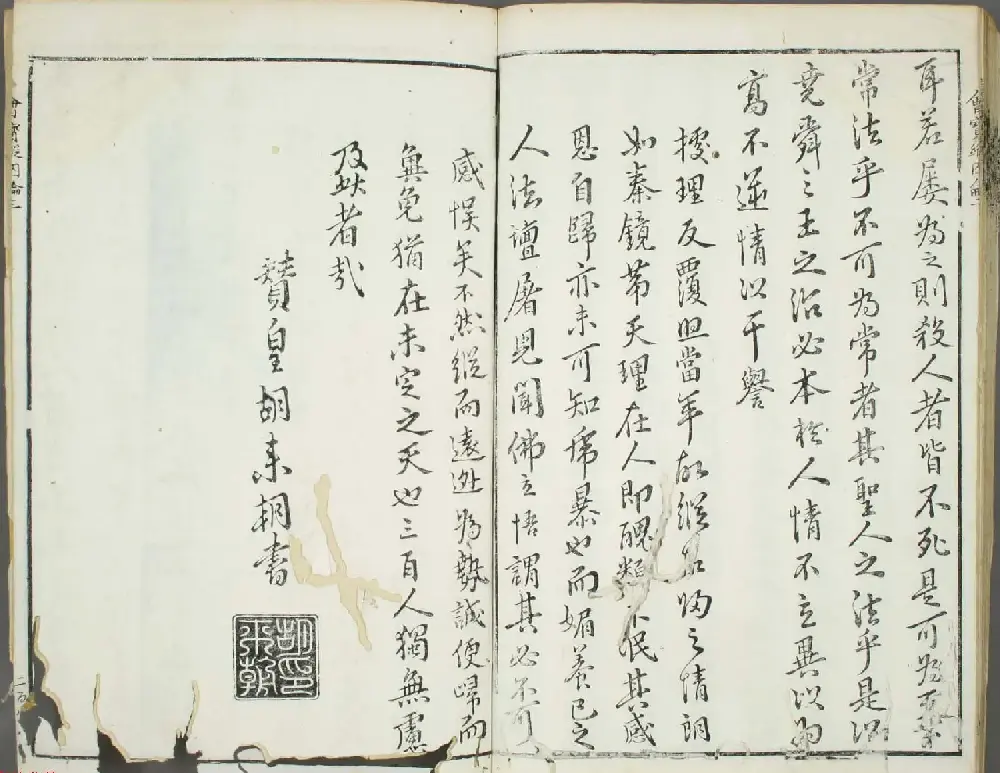 耳若屢為之則殺人者皆不死是可為天下
常法乎不可為常者其聖人之法乎是以
堯舜三王之治必本於人情不立異以為
高不逆情以干譽
援理反覆但當年故縱
之情朗
如秦鏡第天理在人即醜類
民其感
恩自歸亦未可知帝暴也而媚養己之
人法壇屠見聞佛立悟謂其必不可
感悞矣不然縱而遠逝為勢誠便歸而
無免猶在未定之天也三百人獨無慮
及此者哉
贊皇胡来朝書
胡印来朝